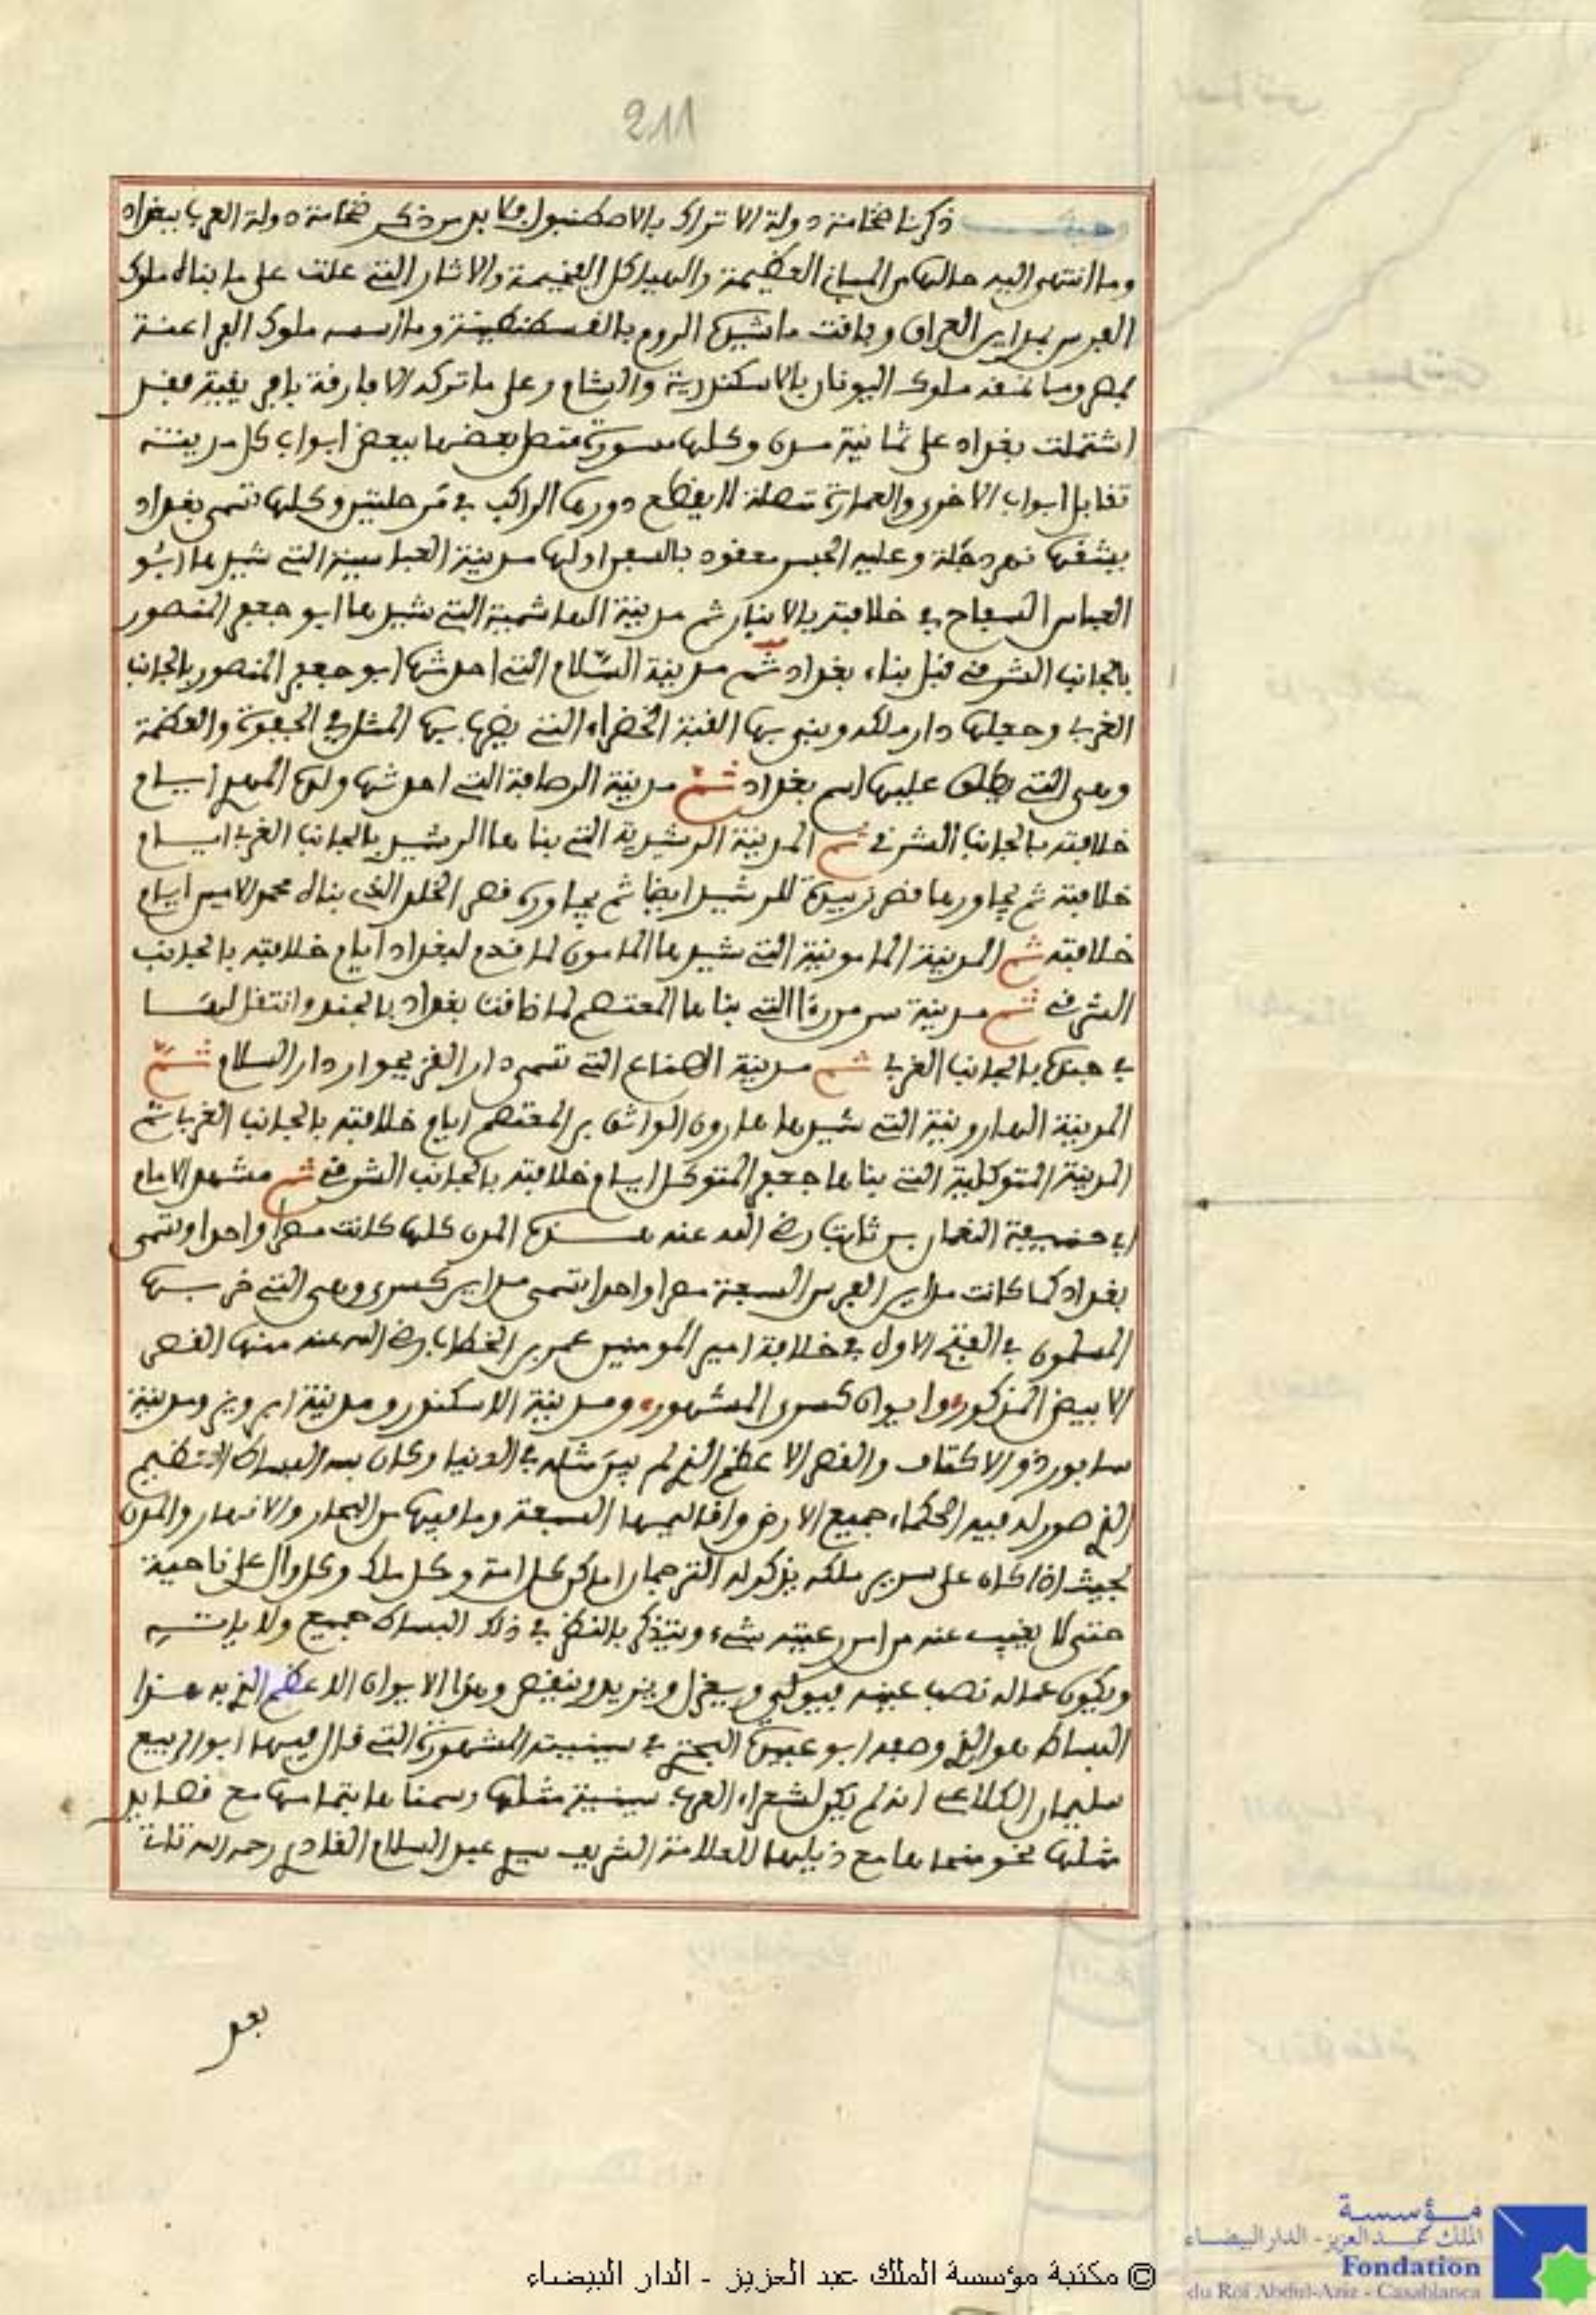 211
وحيث ذكرنا ضخامة دولة الاتراك بالاصطنبول فلا بد من ذكر ضخامة دولة العرب ببغداد
وما انتهى اليه حالها من المباني العظيمة والهياكل الفخيمة والاثار التي علت على ما بناه ملوك
الفرس بمداين العراق وفاقت ما شيده الروم بالقسطنطينة وما اسسه ملوك الفراعنة
بمصر وما نمقه ملوك اليونان بالاسكندرية والشام وعلى ما تركه الافارقة بافريقية فقد
اشتملت بغداد على ثمانية مدن وكلها مسورة متصل بعضها ببعض ابواب كل مدينة
تقابل ابواب الاخرى والعمارة متصلة لا يقطع دورها الراكب في مرحلتين وكلها تسمى بغداد
يشقها نهر دجلة وعليه الجسر معقود بالسفن اولها مدينة العباسية التي شيدها ابو
العباس السفاح في خلافته بالانبار ثم مدينة الهاشمية التي شيدها ابو جعفر المنصور
بالجانب الشرقي قبل بناء بغداد ثم مدينة السلام التي احدثها ابو جعفر المنصور بالجانب
الغربي وجعلها دار ملكه وبنى بها القبة الخضراء التي يضرب بها المثل في الجفوة والعظمة
وهي التي يطلق عليها اسم بغداد ثم مدينة الرصافة التي احدثها ولده المهدي ايام
خلافته بالجانب الشرقي ثم المدينة الرشيدية التي بناها الرشيد بالجانب الغربي ايام
خلافته ثم يجاورها قصر زبيدة للرشيد ايضا ثم يجاوره قصر الخلد الذي بناه محمد الامين ايام
خلافته ثم المدينة المامونية التي شيدها المامون لما قدم لبغداد ايام خلافته بالجانب
الشرقي ثم مدينة سر من رءا التي بناها المعتصم لما ضاقت بغداد بالجند وانتقل لها
في جنده بالجانب الغربي ثم مدينة الصناع التي تسمى دار القز بجوار دار السلام ثم
المدينة الهارونية التي شيدها هارون الواثق بن المعتصم ايام خلافته بالجانب الغربي ثم
المدينة المتوكلية التي بناها جعفر المتوكل ايام خلافته بالجانب الشرقي ثم مشهد الامام
ابي حنيفة النعمان بن ثابت رضي الله عنه هذه المدن كلها كانت مصرا واحدا وتسمى
بغداد كما كانت مداين الفرس السبعة مصرا واحدا تسمى مداين كسرى وهي التي خربها
المسلمون في الفتح الاول في خلافة امير المومنين عمر بن الخطاب رضي الله عنه منها القصر
الابيض المذكور وايوان كسرى المشهور ومدينة الاسكندر ومدينة ابرويز ومدينة
سابور ذو الاكتاف والقصر الاعظم الذي لم يبن مثله في الدنيا وكان به البساط العظيم
الذي صور له فيه الحكماء جميع الارض واقاليمها السبعة وما فيها من البحار والانهار والمدن
بحيث اذا كان على سرير ملكه يذكر له الترجمان اماكن كل امة وكل ملك وكل وال على ناحية
حتى لا يغيب عنه من امر رعيته شيء ويتذكر بالنظر في ذلك البساط جميع ولاياته
ويكون عماله نصب عينه فيولي ويعزل ويزيد وينقص وهذا الايوان الاعظم الذي به هذا
البساط هو الذي وصفه ابو عبيدة البحتري في سينيته المشهورة التي قال فيها ابو الربيع
سليمان الكلاعي انه لم يكن لشعراء العرب سينية مثلها رسمناها بتمامها مع قصايد
مثلها نحو منحاها مع ذيلها للعلامة الشريف سيدي عبد السلام القادري رحمه الله
بعد
© مكتبة مؤسسة الملك عبد العزيز - الدار البيضاء
مؤسسة
الملك عبد العزيز - الدار البيضاء
Fondation
du Roi Abdul-Aziz - Casablanca